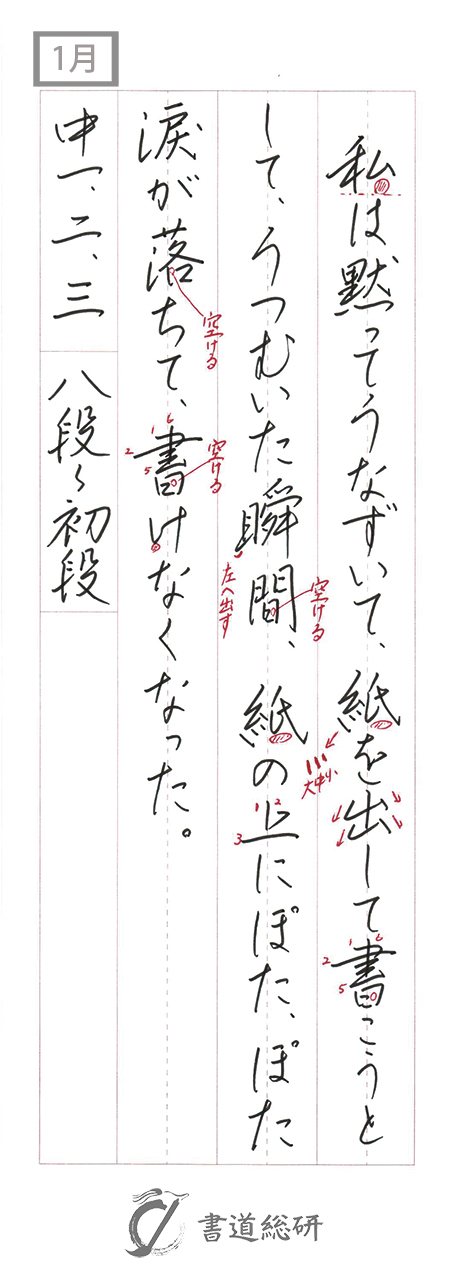 1月
私は黙ってうなずいて、紙を出して書こうと
して、うつむいた瞬間、紙の上にぽた、ぽた
涙が落ちて、書けなくなった。
中一、二、三
八段〜初段
空ける
大中小
1 6
2
5
空ける
左へ出す
1 2
3
空ける
1 6
2
5
書道総研